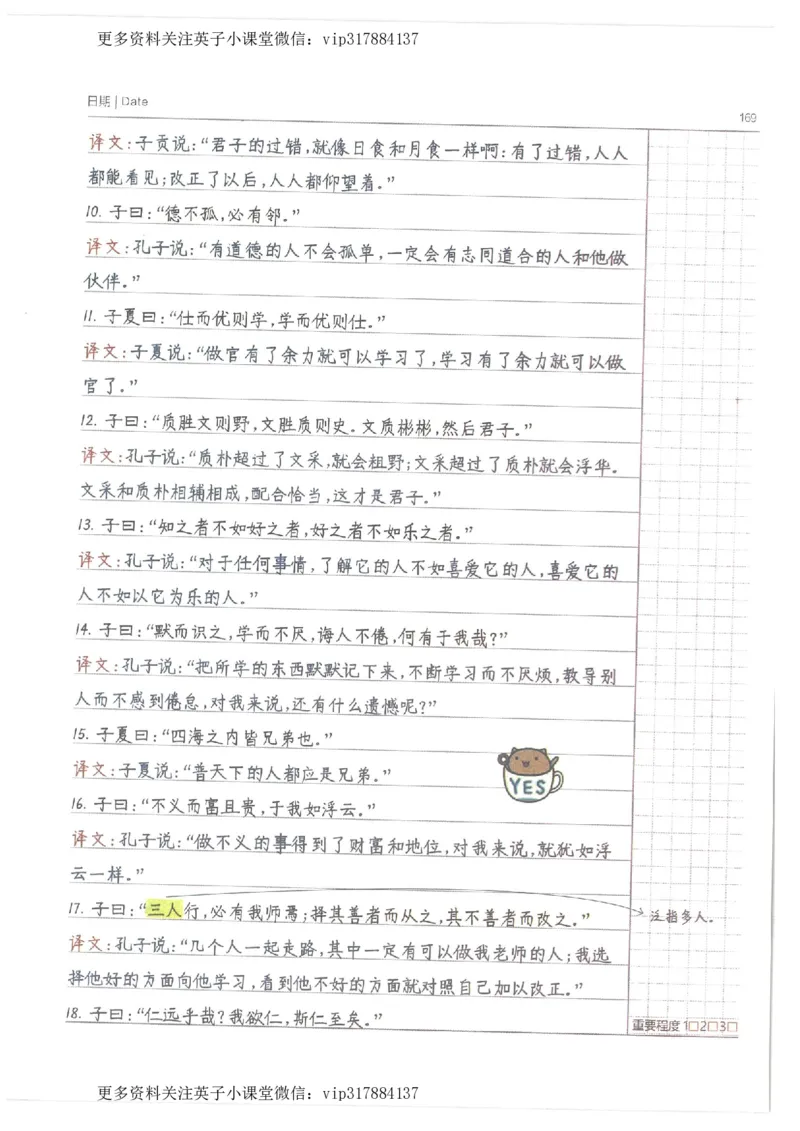 更多资料关注英子小课堂微信：vip317884137
日期 | Date
169
译文：子贡说：“君子的过错，就像日食和月食一样啊：有了过错，人人
都能看见；改正了以后，人人都仰望着。”
10. 子曰：“德不孤，必有邻。”
译文：孔子说：“有道德的人不会孤单，一定会有志同道合的人和他做
伙伴。”
11. 子夏曰：“仕而优则学，学而优则仕。”
译文：子夏说：“做官有了余力就可以学习了，学习有了余力就可以做
官了。”
12. 子曰：“质胜文则野，文胜质则史。文质彬彬，然后君子。”
译文：孔子说：“质朴超过了文采，就会粗野；文采超过了质朴就会浮华。
文采和质朴相辅相成，配合恰当，这才是君子。”
13. 子曰：“知之者不如好之者，好之者不如乐之者。”
译文：孔子说：“对于任何事情，了解它的人不如喜爱它的人，喜爱它的
人不如以它为乐的人。”
14. 子曰：“默而识之，学而不厌，诲人不倦，何有于我哉？”
译文：孔子说：“把所学的东西默默记下来，不断学习而不厌烦，教导别
人而不感到倦怠，对我来说，还有什么遗憾呢？”
15. 子夏曰：“四海之内皆兄弟也。”
译文：子夏说：“普天下的人都应是兄弟。”
YES
16. 子曰：“不义而富且贵，于我如浮云。”
译文：孔子说：“做不义的事得到了财富和地位，对我来说，就犹如浮
云一样。”
17. 子曰：“三人行，必有我师焉；择其善者而从之，其不善者而改之。”
泛指多人。
译文：孔子说：“几个人一起走路，其中一定有可以做我老师的人；我选
择他好的方面向他学习，看到他不好的方面就对照自己加以改正。”
18. 子曰：“仁远乎哉？我欲仁，斯仁至矣。”
重要程度 1□2□3□
更多资料关注英子小课堂微信：vip317884137